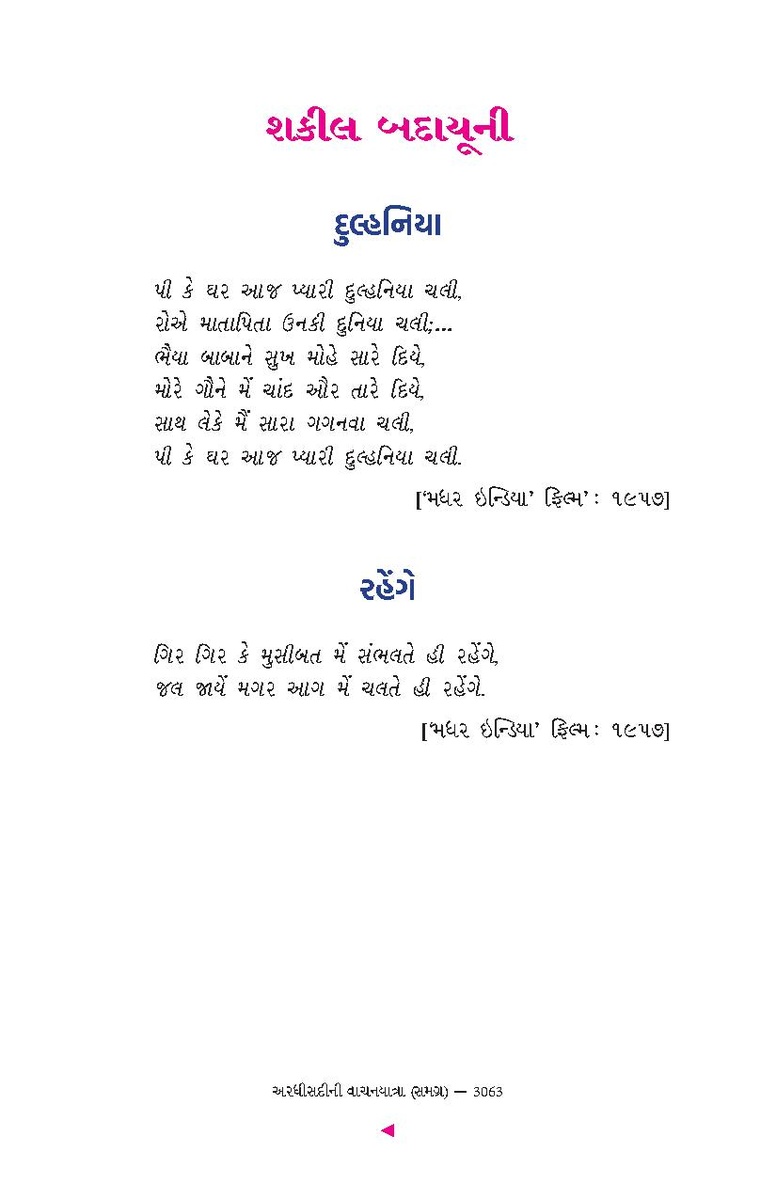 શકીલ બદાયૂની
દુલ્હનિયા
પી કે ઘર આજ પ્યારી દુલ્હનિયા ચલી,
રોએ માતાપિતા ઉનકી દુનિયા ચલી;...
ભૈયા બાબાને સુખ મોહે સારે દિયે,
મોરે ગૌને મેં ચાંદ ઔર તારે દિયે,
સાથ લેકે મૈં સારા ગગનવા ચલી,
પી કે ઘર આજ પ્યારી દુલ્હનિયા ચલી.
[‘મધર ઇન્ડિયા’ ફિલ્મ’ : ૧૯૫૭]
રહેંગે
ગિર ગિર કે મુસીબત મેં સંભલતે હી રહેંગે,
જલ જાયેં મગર આગ મેં ચલતે હી રહેંગે.
[‘મધર ઇન્ડિયા’ ફિલ્મ : ૧૯૫૭]
અરધીસદીની વાચનયાત્રા (સમગ્ર) — 3063